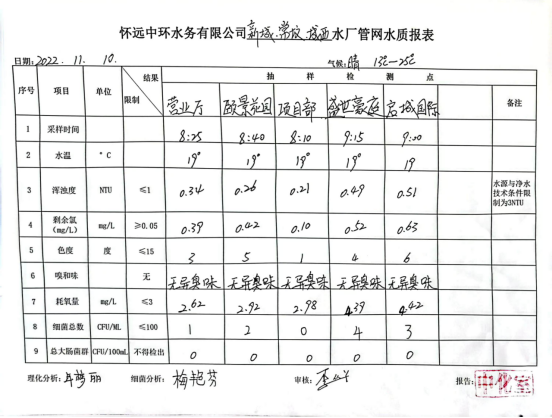 怀远中环水务有限公司新城.常坟.城西水厂管网水质报表
日期:2022.11.10. 气候:晴 13℃—25℃
序号 项目 单位 结果 限制 抽样检测点 备注
营业厅 颐景花园 项目部 盛世豪庭 启城国际
1 采样时间 8:25 8:40 8:10 9:15 9:20
2 水温 °C 19° 19° 19° 19° 19
3 浑浊度 NTU ≤1 0.34 0.26 0.21 0.49 0.51 水源与净水技术条件限制为3NTU
4 剩余氯(mg/L) mg/L ≥0.05 0.39 0.42 0.10 0.52 0.63
5 色度 度 ≤15 3 5 1 4 6
6 嗅和味 无 无异臭味 无异臭味 无异臭味 无异臭味 无异臭味
7 耗氧量 mg/L ≤3 2.62 2.92 2.98 4.39 4.42
8 细菌总数 CFU/ML ≤100 1 2 0 4 3
9 总大肠菌群 CFU/100mL 不得检出 0 0 0 0 0
理化分析: 细菌分析:梅艳芬 审核: 报告:中化室